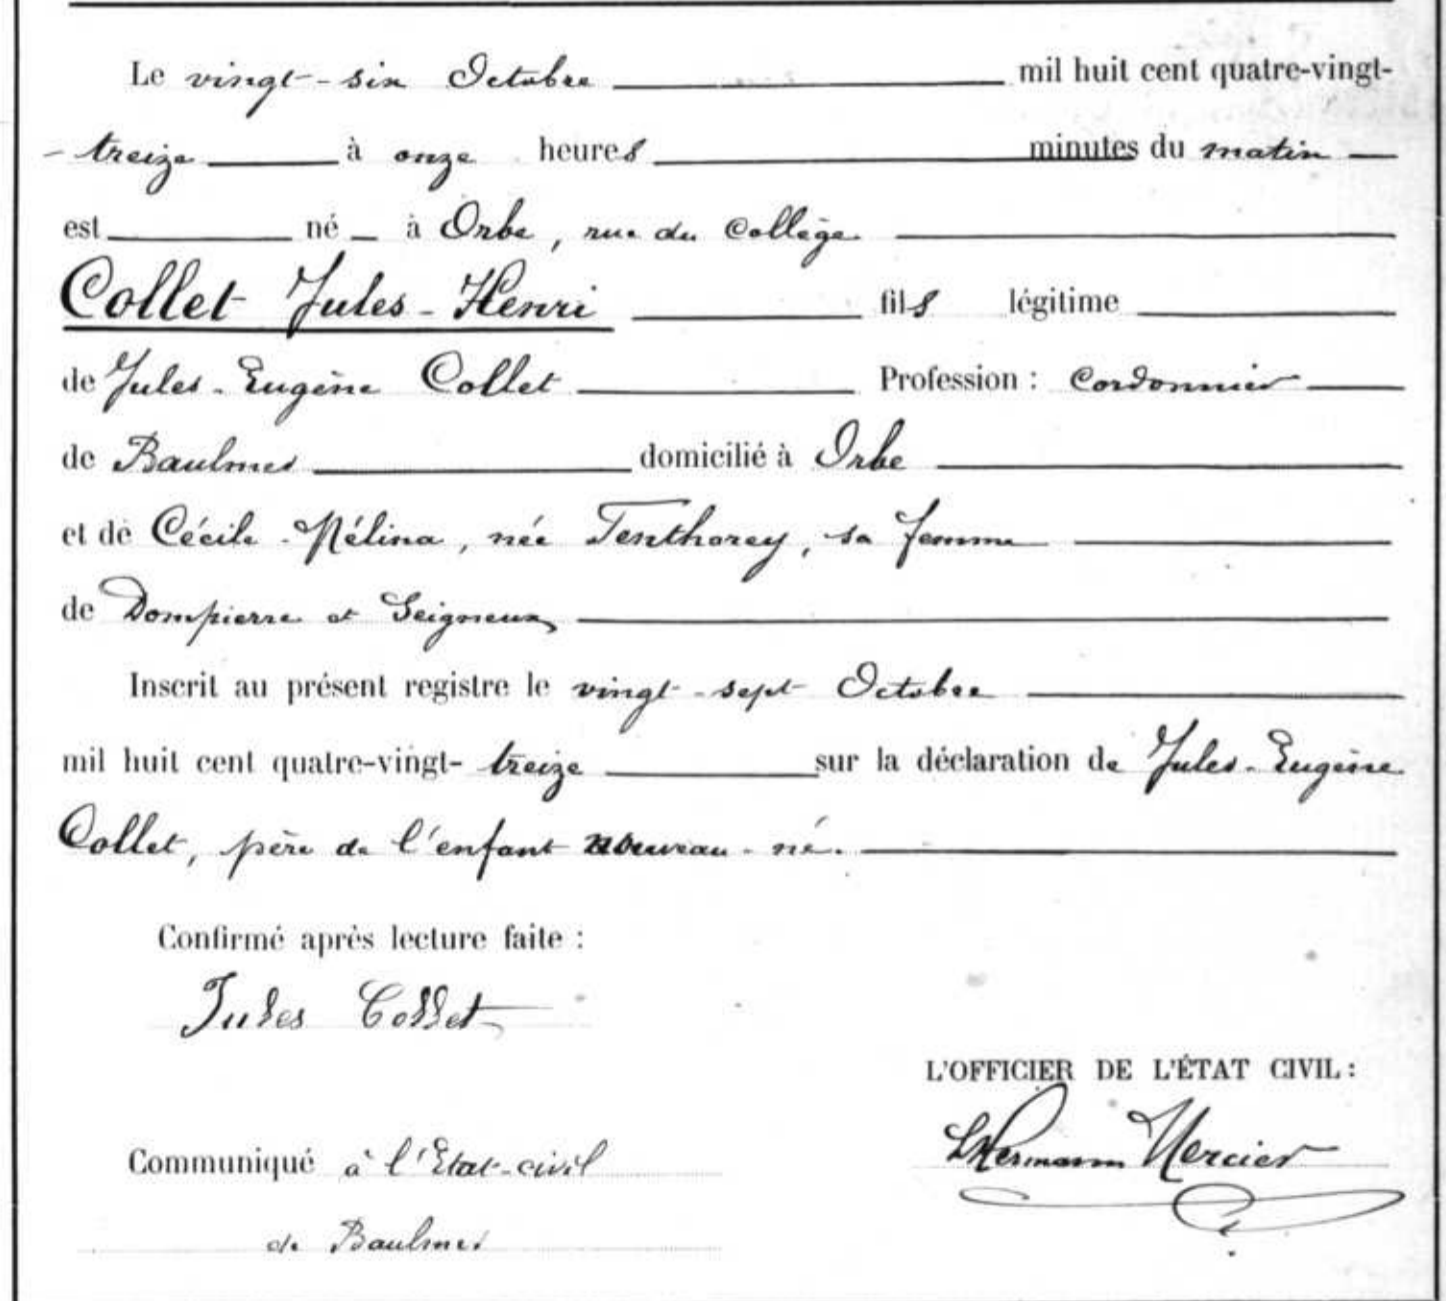 Le vingt-six Octobre mil huit cent quatre-vingt-
-treize à onze heures minutes du matin
est né à Orbe, rue du Collège
Collet Jules-Henri fils légitime
de Jules-Eugène Collet Profession : Cordonnier
de Baulmes domicilié à Orbe
et de Cécile-Mélina, née Tenthorey, sa femme
de Dompierre et Seigneux
Inscrit au présent registre le vingt-sept Octobre
mil huit cent quatre-vingt-treize sur la déclaration de Jules-Eugène
Collet, père de l'enfant nouveau-né.
Confirmé après lecture faite :
Jules Collet
L'OFFICIER DE L'ÉTAT CIVIL :
Hermann Mercier
Communiqué à l'Etat-civil
de Baulmes